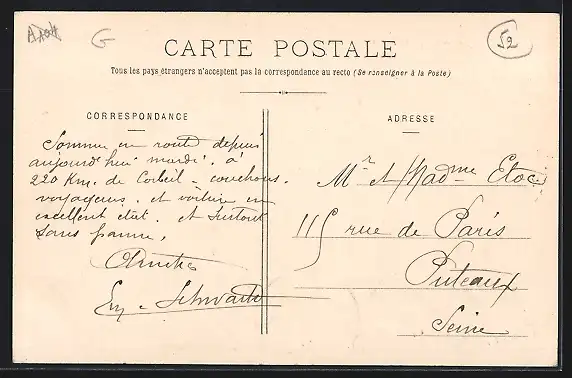 52
G
CARTE POSTALE
Tous les pays étrangers n'acceptent pas la correspondance au recto (Se renseigner à la Poste)
CORRESPONDANCE
Sommes en route depuis
aujourd'hui mardi. à
220 Km. de Corbeil - couchons.
voyageurs. et voiture en
excellent état. et surtout
sans panne.
Amitiés
Eug. Schwartz
ADRESSE
Mr et Madme Etoc
115 rue de Paris
Puteaux
Seine